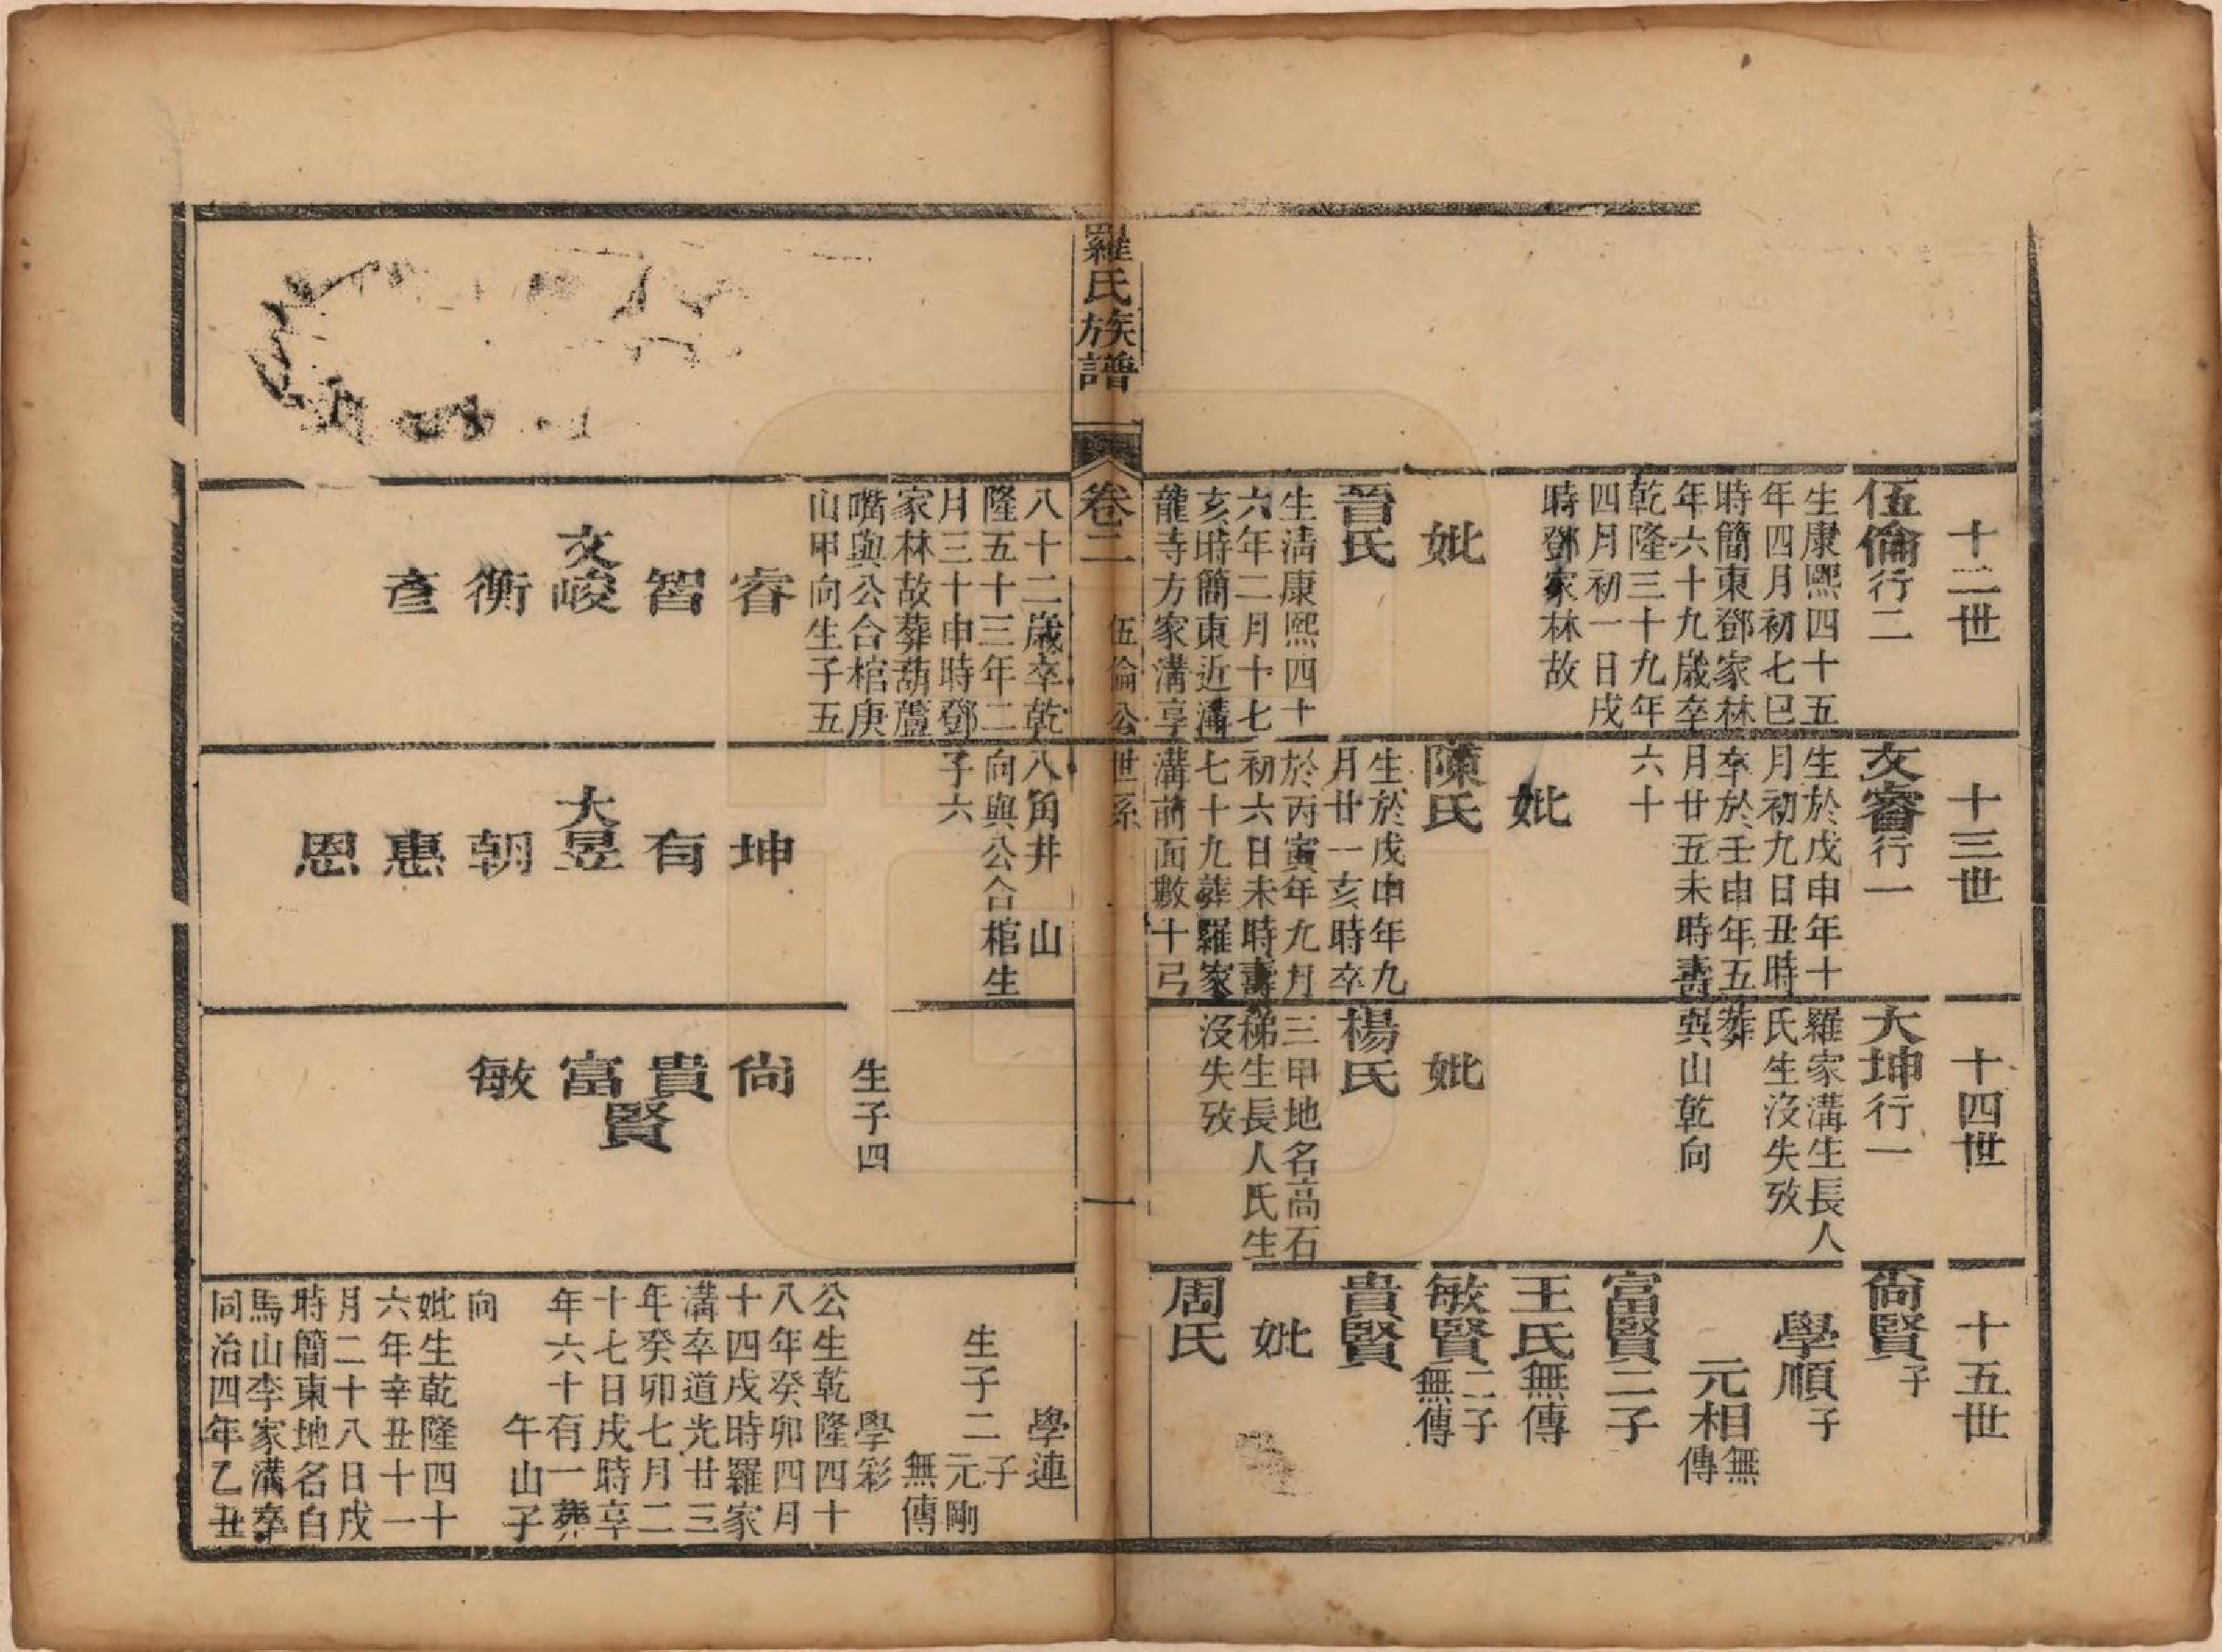 十二世
伍倫行二
生康熙四十五
年四月初七巳
時簡東鄧家林
年六十九歲卒
乾隆三十九年
四月初一日戌
時鄧家林故
妣
晉氏
生清康熙四十
六年二月十七
亥時簡東近溝
龍寺方家溝享
十三世
文睿行一
生於戊申年十
月初九日丑時
卒於壬申年五
月廿五未時壽
六十
妣
陳氏
生於戊申年九
月廿一亥時卒
於丙寅年九月
初六日未時壽
七十九葬羅家
溝前面數十弓
十四世
大坤行一
羅家溝生長人
氏生沒失攷
葬
巽山乾向
妣
楊氏
三甲地名高石
梯生長人氏生
沒失攷
十五世
尙賢子
學順子
元相無傳
富賢二子
王氏無傳
敏賢二子無傳
貴賢
妣
周氏
羅氏族譜
卷二 伍倫公世系
一
八十二歲卒乾
隆五十三年二
月三十申時鄧
家林故葬葫蘆
嘴與公合棺庚
山甲向生子五
睿
智
文峻
衡
彥
八角井 山
向與公合棺生
子六
坤
有
大昱
朝
惠
恩
生子四
尙
貴
富
敏
賢
學連
子
生子二元剛
無傳
學彩
公生乾隆四十
八年癸卯四月
十四戌時羅家
溝卒道光廿三
年癸卯七月二
十七日戌時享
年六十有一葬
午山子
向
妣生乾隆四十
六年辛丑十一
月二十八日戌
時簡東地名白
馬山李家溝卒
同治四年乙丑